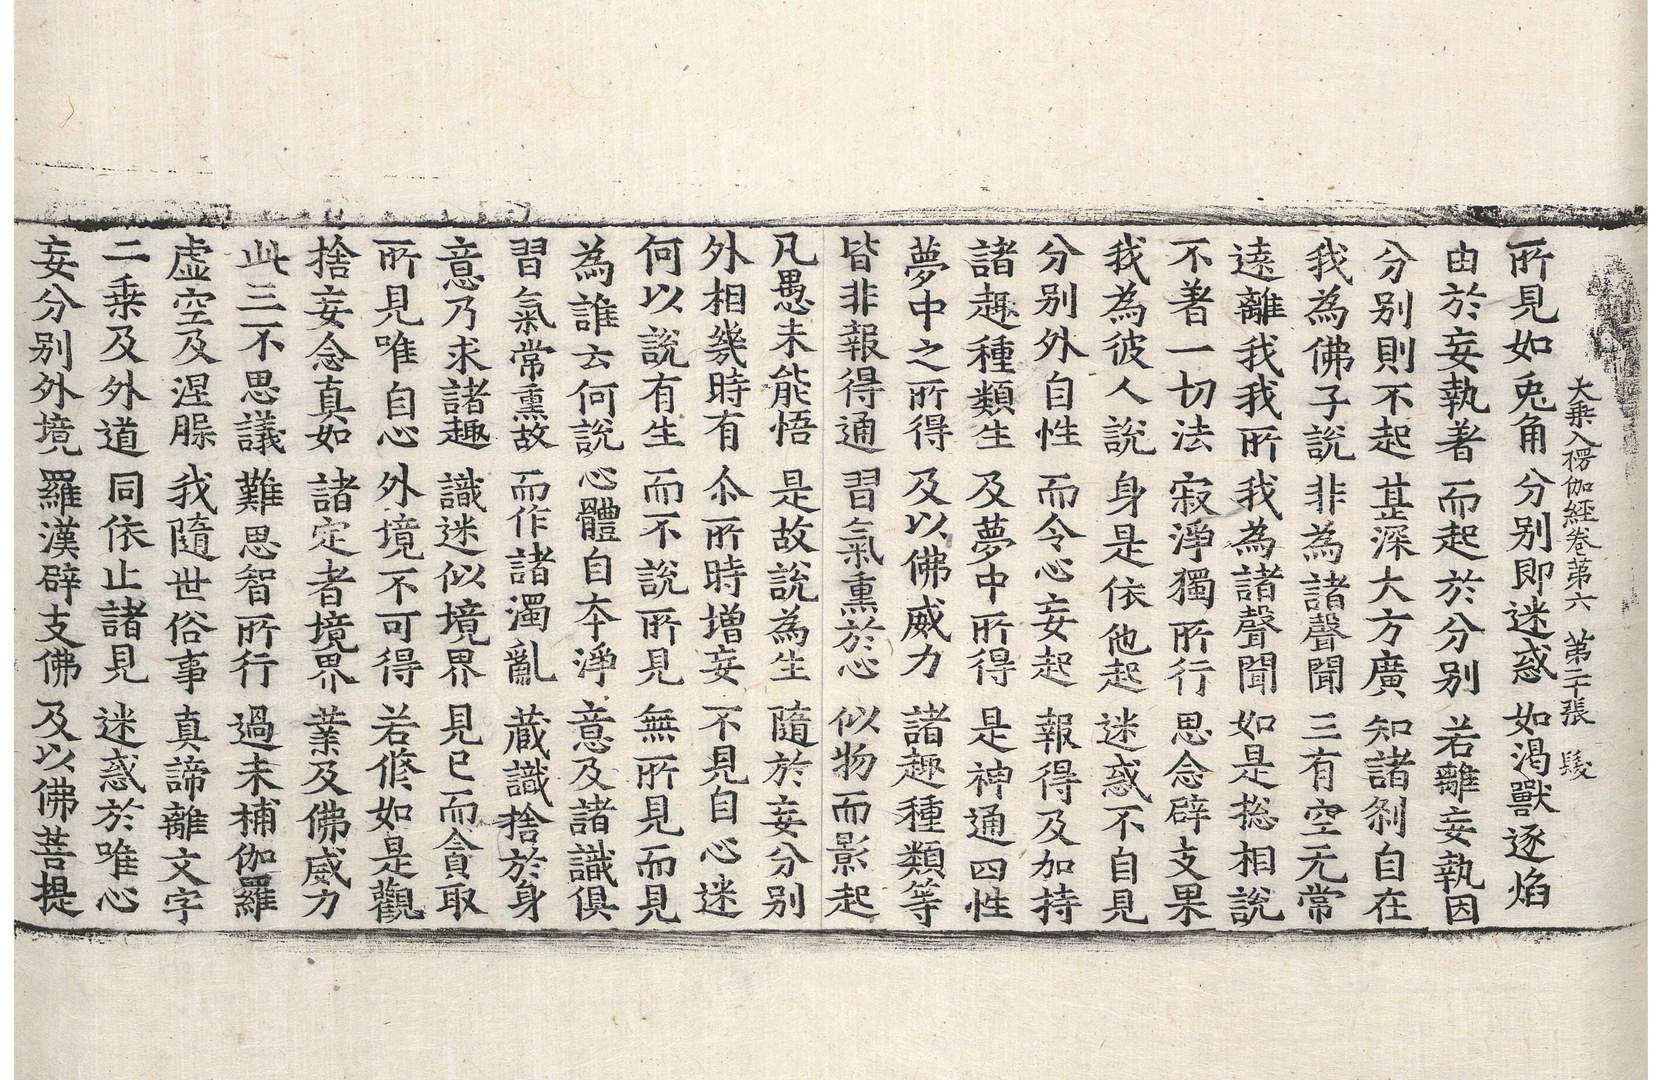 大乗入楞伽経卷第六　第二十張　髮
所見如兎角　分别即迷惑　如渇獸逐焰
由於妄執著　而起於分别　若離妄執因
分别則不起　甚深大方廣　知諸刹自在
我為佛子說　非為諸聲聞　三有空无常
遠離我我所　我為諸聲聞　如是揔相說
不著一切法　寂淨獨所行　思念辟支果
我為彼人說　身是依他起　迷惑不自見
分别外自性　而令心妄起　報得及加持
諸趣種類生　及夢中所得　是神通四性
夢中之所得　及以佛威力　諸趣種類等
皆非報得通　習氣熏於心　似物而影起
凡愚未能悟　是故說為生　隨於妄分别
外相幾時有　尒所時增妄　不見自心迷
何以說有生　而不說所見　無所見而見
為誰云何說　心體自夲淨　意及諸識俱
習氣常熏故　而作諸濁亂　藏識捨於身
意乃求諸趣　識迷似境界　見已而貪取
所見唯自心　外境不可得　若修如是觀
捨妄念真如　諸定者境界　業及佛威力
此三不思議　難思智所行　過未補伽羅
虛空及涅槃　我隨世俗事　真諦離文字
二乗及外道　同依止諸見　迷惑於唯心
妄分别外境　羅漢辟支佛　及以佛菩提